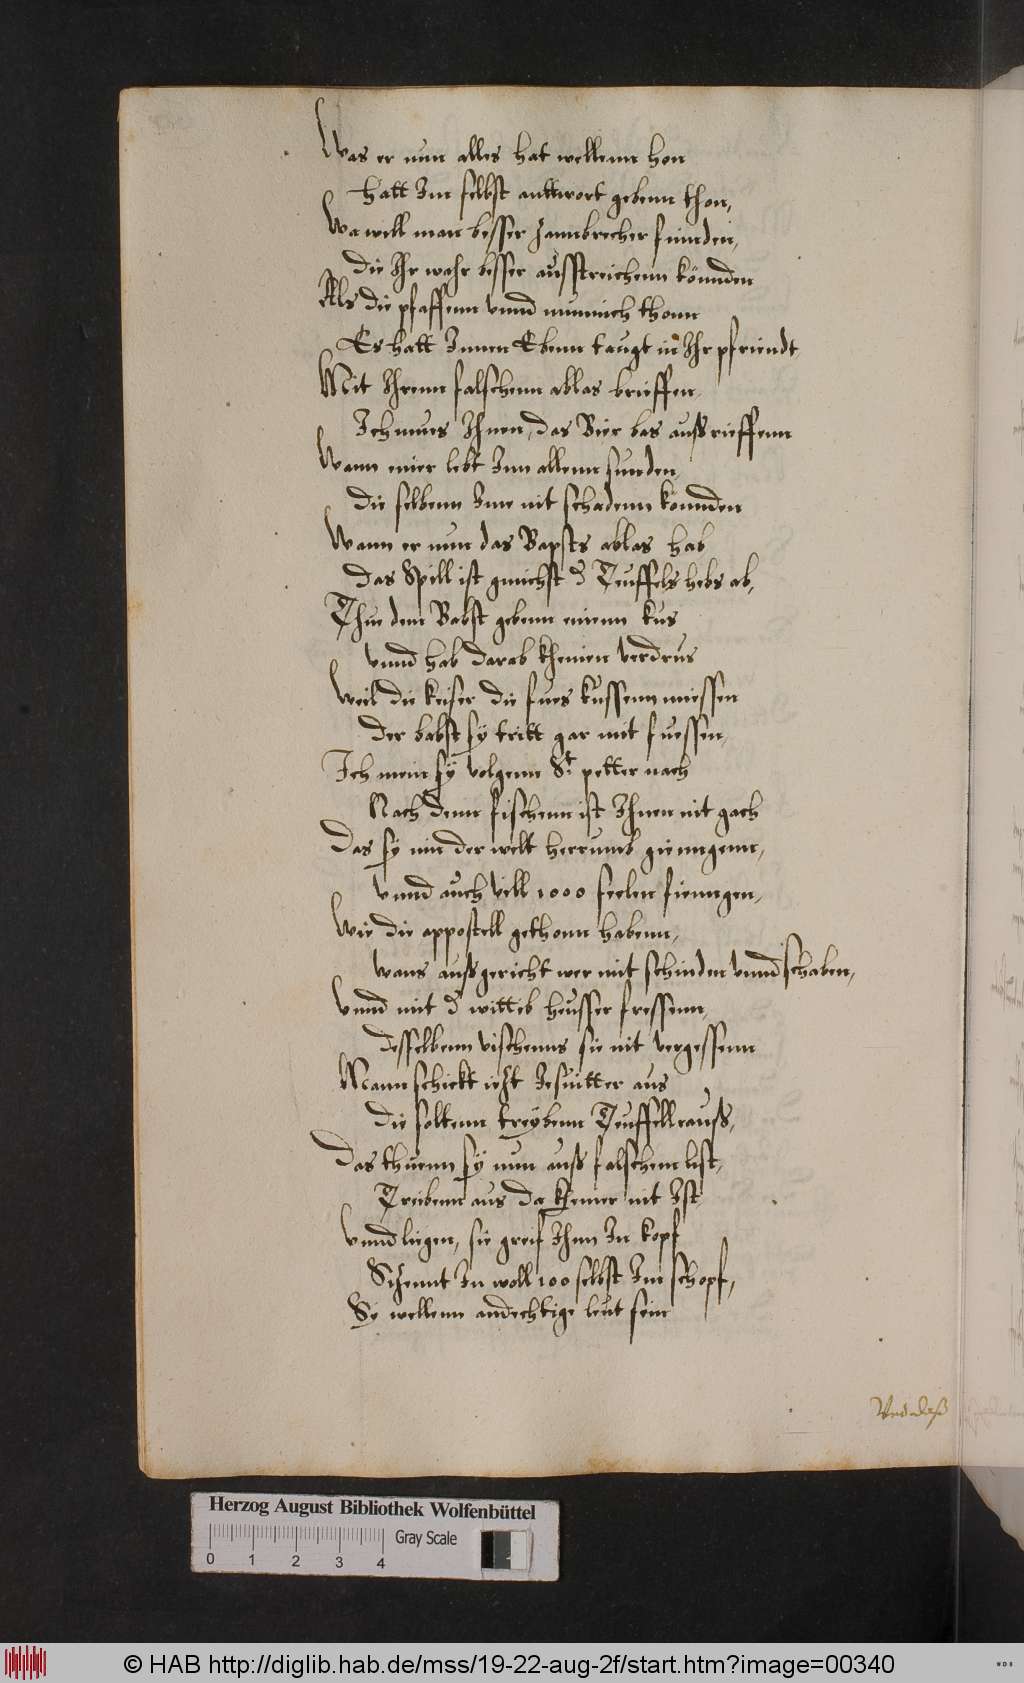 Was er nun alles hat wellenn hon
Hatt Im selbst anttwort gebenn thon,
Wa will man besser Zannbrecher finnden,
die Ihr wahr besser ausstreichenn könnden
Als die pfaffenn vnnd munnich thonn
Es hatt Innen Ebenn taugt in Ihr pfriendt
Mit Ihrenn falschenn ablas brieffen
Ich mues Ihnen, das Bier bas ausß rieffenn
Wann einer lebt Inn allenn sunden
die selbenn Ime nit schadenn konnden
Wann er nun das Bapsts ablas hab
das Spill ist gmischt d Teuffels hebs ab,
Thue dem Babst gebenn einenn kus
vnnd hab darab kheinen verdrus
Weil die keiser die fues kussenn miessen
der babst sy tritt gar mit fuessen,
Ich mein sy volgenn St. petter nach
Nach denn fischenn ist Ihnen nit gach
das sy inn der welt herrumb gienngenn,
vnnd auch vill 1000 seelen fienngen,
Wie die appostell gethonn habenn,
wans ausßgericht wer mit schinden vnnd schaben,
Vnnd mit d wittib heusser fressenn,
desselbenn vischenns sie nit vergessenn
Mann schickt iezt Jesuitter aus
die soltenn treybenn Teuffell rausß,
das thuenn sy nun ausß falschem list,
Treibenn aus da kheiner nit Ist
Vnnd liegen, sie greif Ihnn In kopf
Schennt In woll 100 selbst Im schopf,
Sy wellenn andechtige leut sein
Vnd daß
Herzog August Bibliothek Wolfenbüttel
Gray Scale
0 1 2 3 4
© HAB http://diglib.hab.de/mss/19-22-aug-2f/start.htm?image=00340